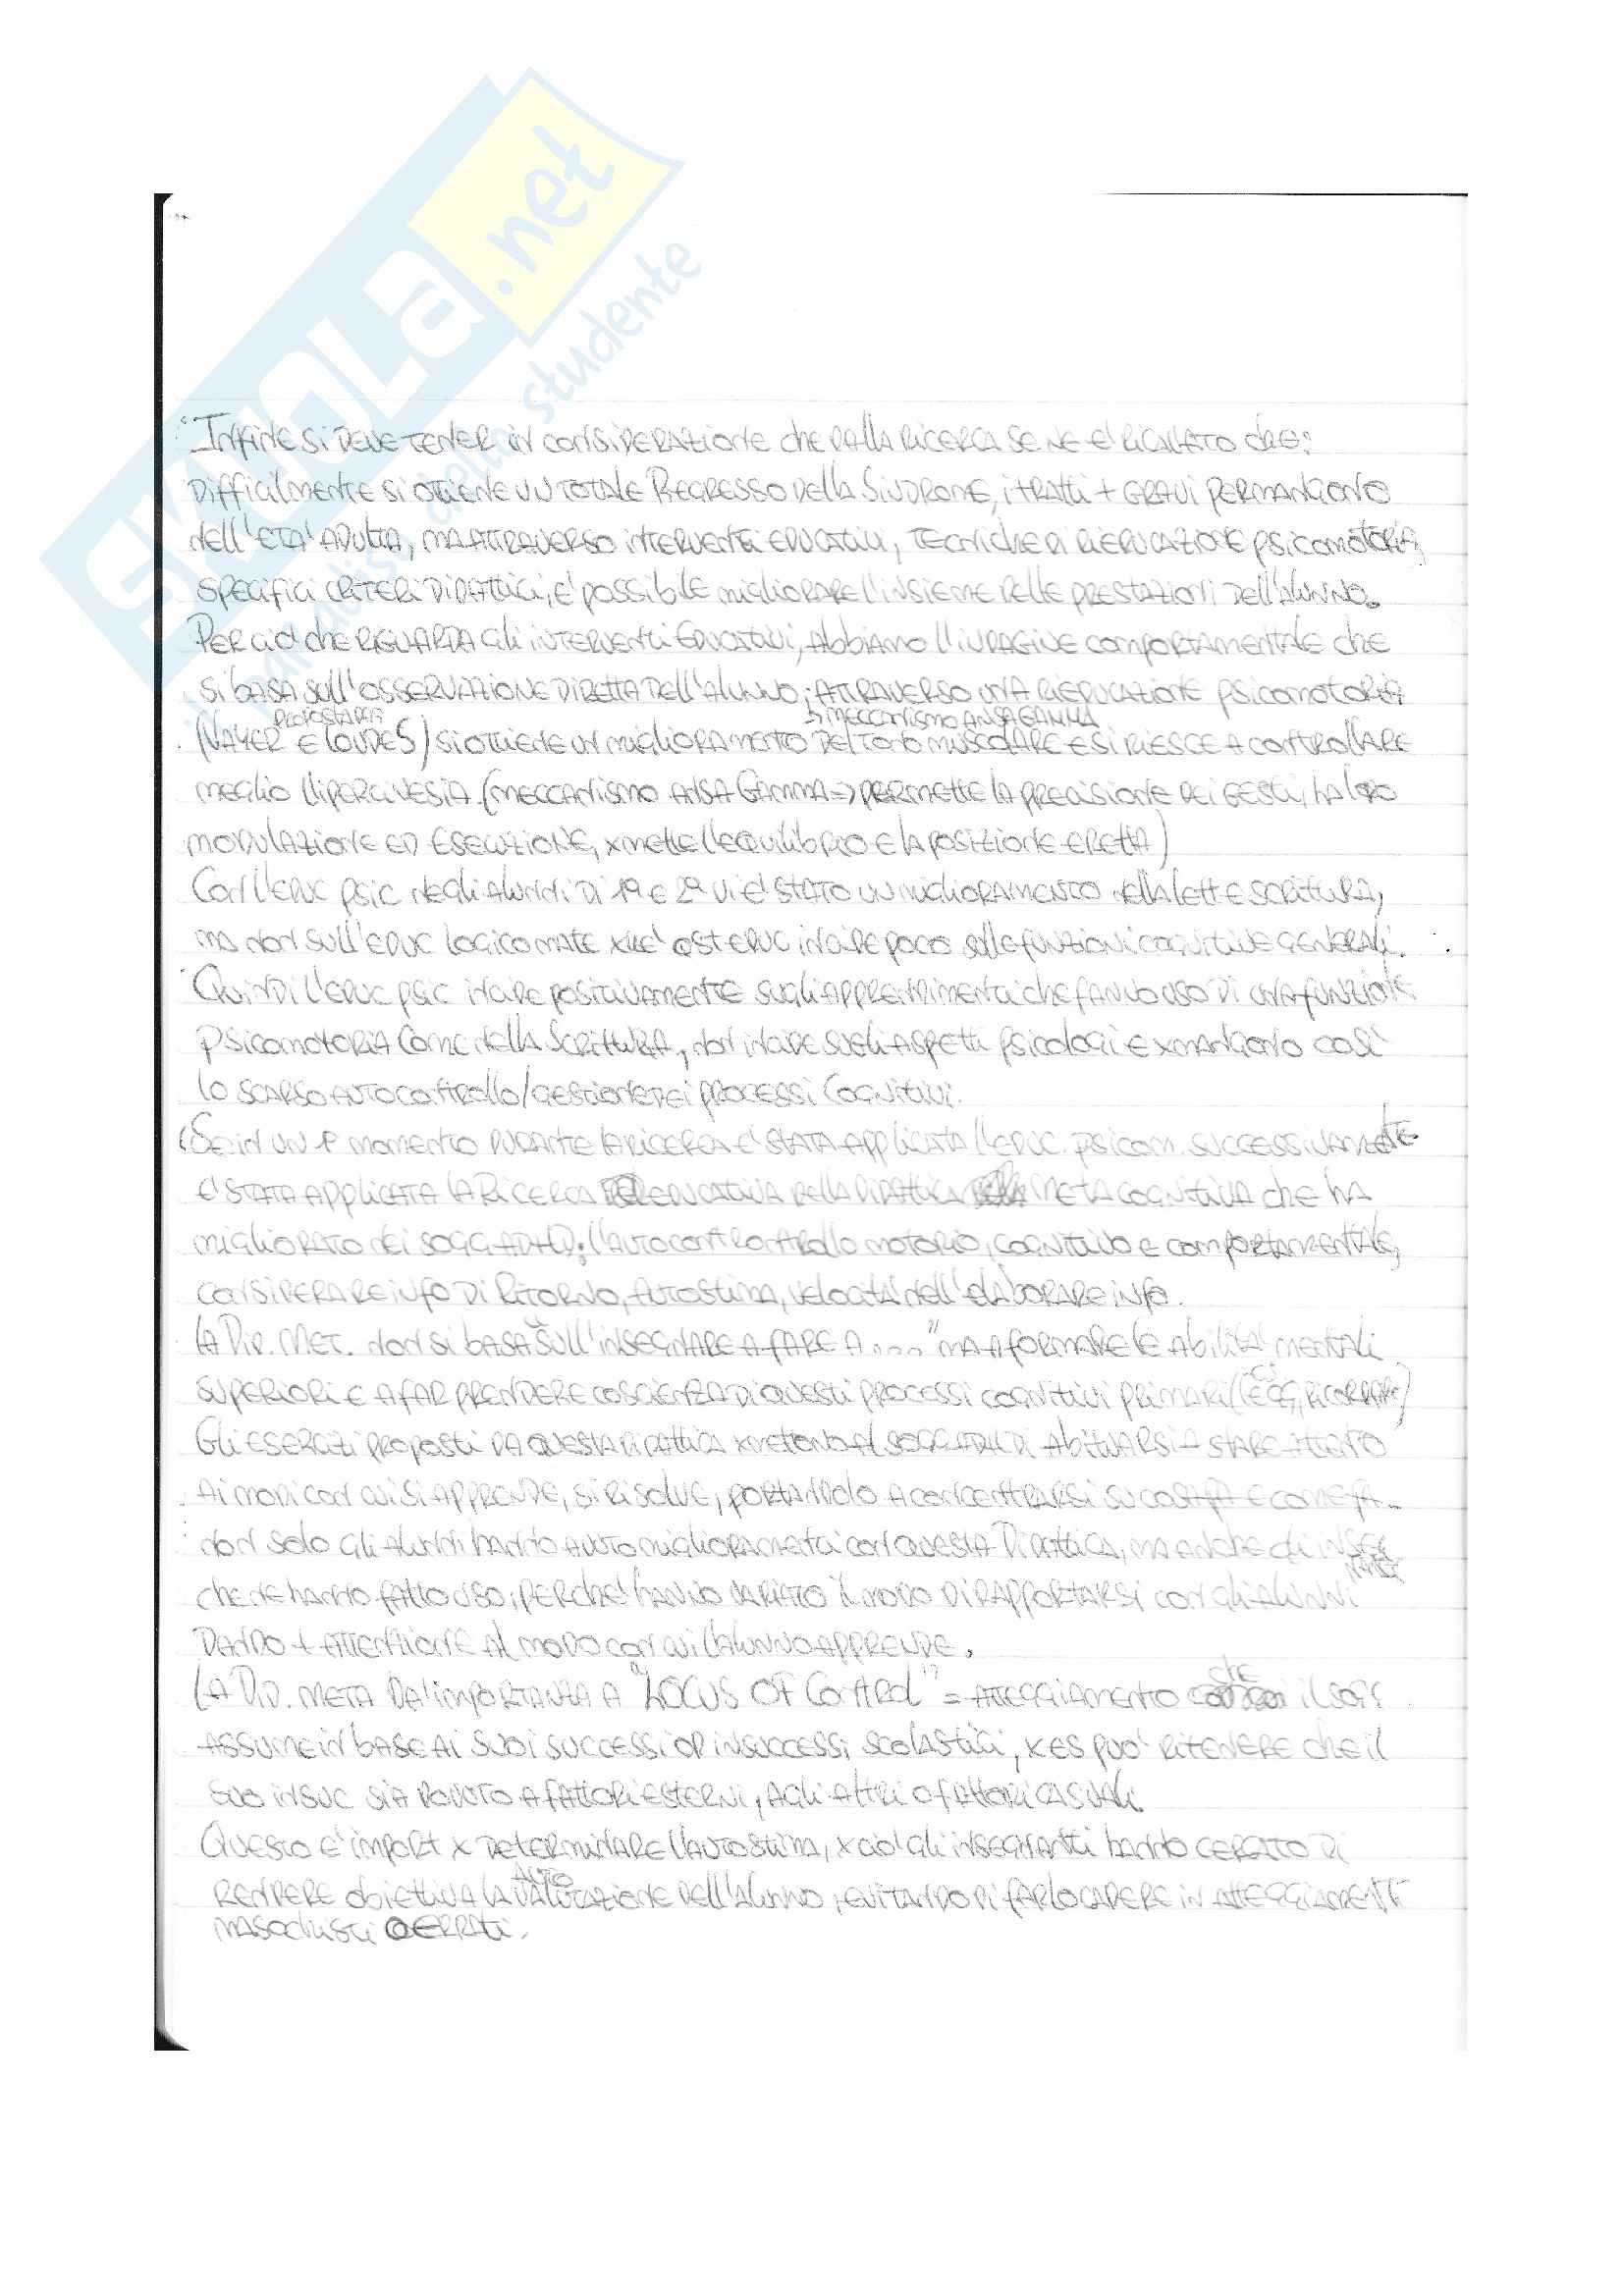 SKUOLA.net
il paradiso dello studente
Infine si deve tener in considerazione che dalla ricerca se ne è ricavato che:
Difficilmente si ottiene un totale Regresso della Sindrome, i tratti + gravi permangono
nell'età adulta, ma attraverso interventi educativi, tecniche di rieducazione psicomotoria,
specifici criteri didattici, è possibile migliorare l'insieme delle prestazioni dell'alunno.
Per ciò che riguarda gli interventi educativi, abbiamo l'indagine comportamentale che
si basa sull'osservazione diretta dell'alunno; attraverso una rieducazione psicomotoria
proposta da → meccanismo ansa gamma
(Vayer e Loudes) si ottiene un miglioramento del tono muscolare e si riesce a controllare
meglio l'ipercinesia (meccanismo ansa Gamma => permette la precisione dei gesti, la loro
modulazione ed esecuzione, xmette l'equilibrio e la posizione eretta)
Con l'educ psic negli alunni di 1ª e 2ª vi è stato un miglioramento nella lett e scrittura,
ma non sull'educ logico mate xkè qst educ incide poco sulle funzioni cognitive generali.
Quindi l'educ psic incide positivamente sugli apprendimenti che fanno uso di una funzione
psicomotoria come nella scrittura, non incide sugli aspetti psicologi e xmangono così
lo scarso autocontrollo/gestione dei processi cognitivi.
(Se in un 1º momento durante la ricerca è stata applicata l'educ. psicom. successivamente
è stata applicata la Ricerca educativa della didattica metacognitiva che ha
migliorato nei sogg ADHD: l'autocontrollo motorio, cognitivo e comportamentale,
considerare info di ritorno, autostima, velocità nell'elaborare info.
La Did. Met. non si basa sull'"insegnare a fare a..." ma a formare le abilità mentali
superiori e a far prendere coscienza di questi processi cognitivi primari (es legg, ricordare)
Gli esercizi proposti da questa didattica xmettono al sogg ADHD di abituarsi a stare attento
ai modi con cui si apprende, si risolve, portandolo a concentrarsi su cosa fa e come fa..
non solo gli alunni hanno avuto miglioramenti con questa Didattica, ma anche gli insegnanti
che ne hanno fatto uso, perchè hanno variato il modo di rapportarsi con gli alunni
dando + attenzione al modo con cui l'alunno apprende.
La Did. meta dà importanza a "Locus of Control" = atteggiamento che il sogg
assume in base ai suoi successi od insuccessi scolastici, x es può ritenere che il
suo insuc sia dovuto a fattori esterni, agli altri o fattori casuali.
Questo è import x determinare l'autostima, x ciò gli insegnanti hanno cercato di
rendere obiettiva la auto valutazione dell'alunno, evitando di farlo cadere in atteggiamenti
masochisti o errati.